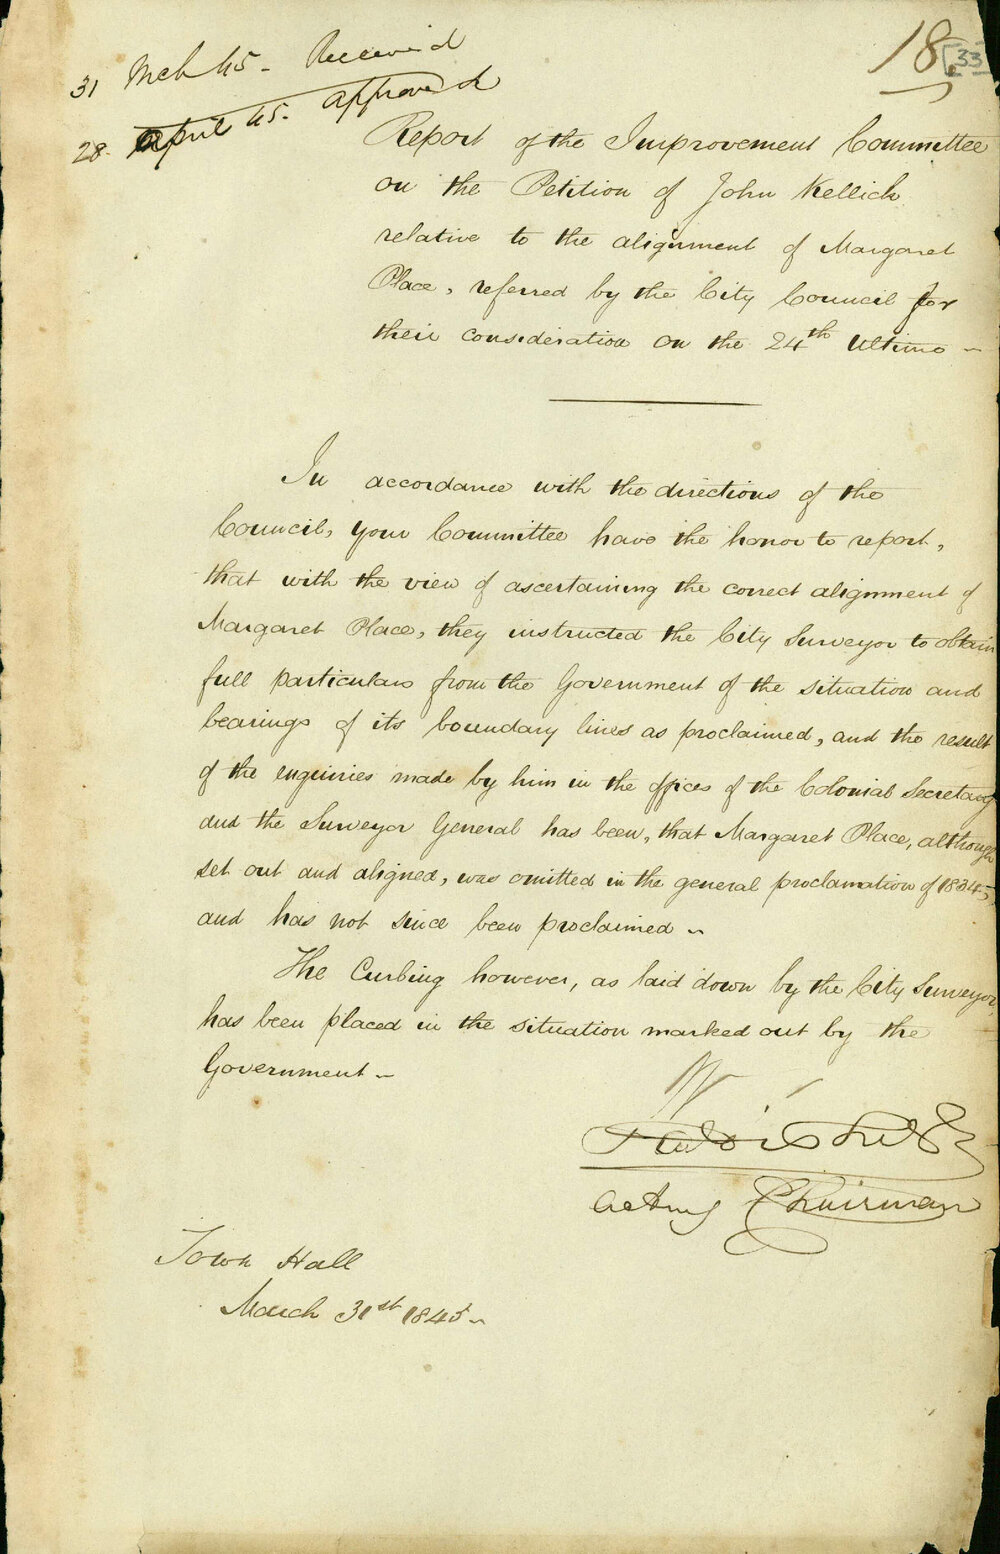 18. [33]
31 Mch 45 - Received
28. April 45. Approved
Report of the Improvement Committee
on the Petition of John Kellick
relative to the alignment of Margaret
Place, referred by the City Council for
their consideration on the 24th Ultimo -
In accordance with the directions of the
Council, your Committee have the honor to report,
that with the view of ascertaining the correct alignment of
Margaret Place, they instructed the City Surveyor to obtain
full particulars from the Government of the situation and
bearings of its boundary lines as proclaimed, and the result
of the enquiries made by him in the offices of the Colonial Secretary
and the Surveyor General has been, that Margaret Place, although
set out and aligned, was omitted in the general proclamation of 1834,
and has not since been proclaimed -
The Curbing however, as laid down by the City Surveyor,
has been placed in the situation marked out by the
Government -
Acting Chairman
Town Hall
March 31st 1845 -